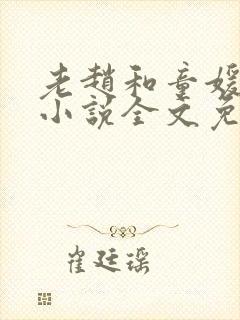 老趙和童媛
小說全文免
崔廷瑶